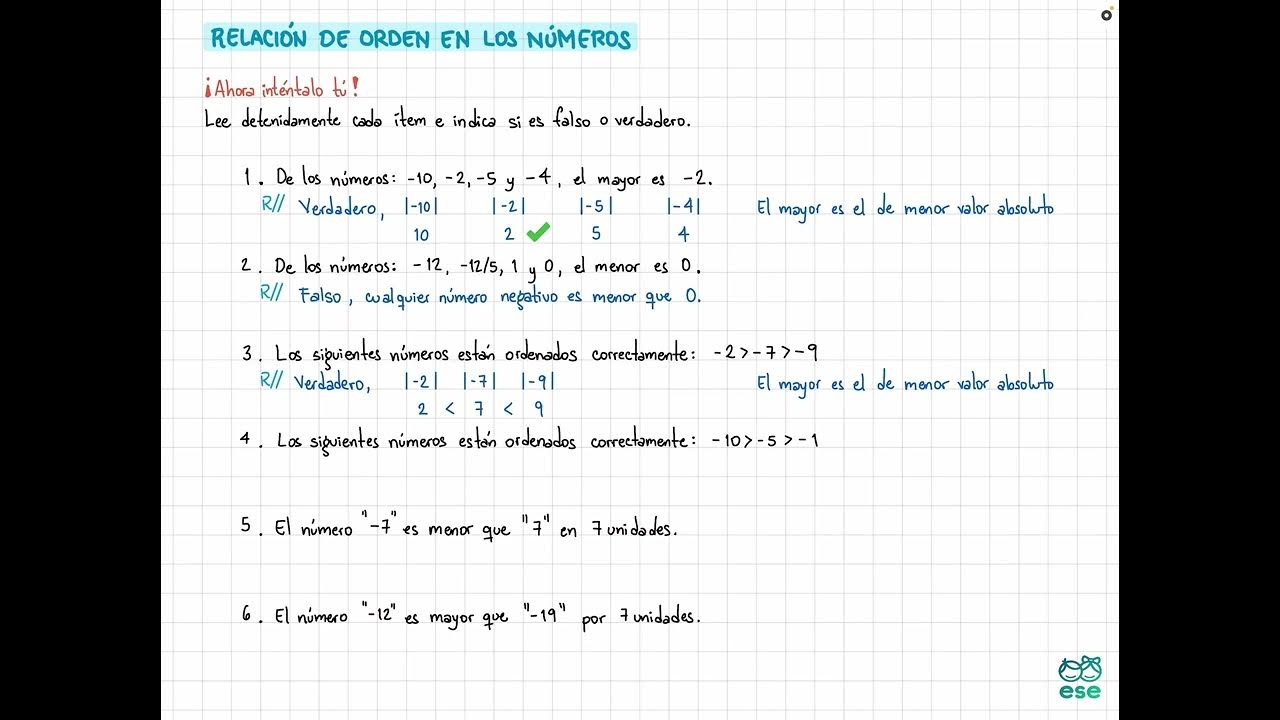 RELACIÓN DE ORDEN EN LOS NÚMEROS
¡Ahora inténtalo tú!
Lee detenidamente cada ítem e indica si es falso o verdadero.
1. De los números: -10, -2, -5 y -4, el mayor es -2.
R// Verdadero, |-10| |-2| |-5| |-4| El mayor es el de menor valor absoluto
10 2 ✓ 5 4
2. De los números: -12, -12/5, 1 y 0, el menor es 0.
R// Falso, cualquier número negativo es menor que 0.
3. Los siguientes números están ordenados correctamente: -2 > -7 > -9
R// Verdadero, |-2| |-7| |-9| El mayor es el de menor valor absoluto
2 < 7 < 9
4. Los siguientes números están ordenados correctamente: -10 > -5 > -1
5. El número "-7" es menor que "7" en 7 unidades.
6. El número "-12" es mayor que "-19" por 7 unidades.
ese